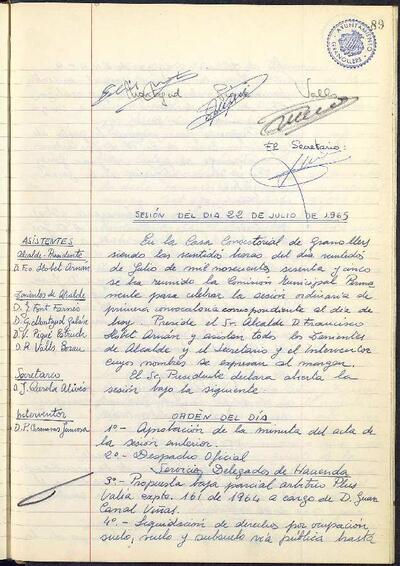 89
AYUNTAMIENTO
GRANOLLERS
Valls
El Secretario:
SESIÓN DEL DIA 22 DE JULIO DE 1965
ASISTENTES
Alcalde-Presidente
D. Fco. Llobet Arnán
Tenientes de Alcalde
D. F. Font Farrés
D. V. Piqué Estruch
D. R. Valls
Secretario
D. J. Querola Alivés
Interventor
En la Casa Consistorial de Granollers
siendo las veintidós horas del día veintidós
de Julio de mil novecientos sesenta y cinco
se ha reunido la Comisión Municipal Perma
mente para celebrar la sesión ordinaria de
primera convocatoria correspondiente al día de
hoy. Preside el Sr. Alcalde D. Francisco
Llobet Arnán y asisten todos los Tenientes
de Alcalde y el Secretario y el Interventor
cuyos nombres se expresan al margen.
El Sr. Presidente declara abierta la
sesión bajo la siguiente
ORDEN DEL DÍA
1º- Aprobación de la minuta del acta de
la sesión anterior.
2º- Despacho Oficial
Servicios Delegados de Hacienda
3º- Propuesta baja parcial arbitrio Plus
Valía expte. 161 de 1964 a cargo de D. Juan
Canal Viñas.
4º- Liquidación de derechos por ocupación,
suelo, vuelo y subsuelo vía pública hasta